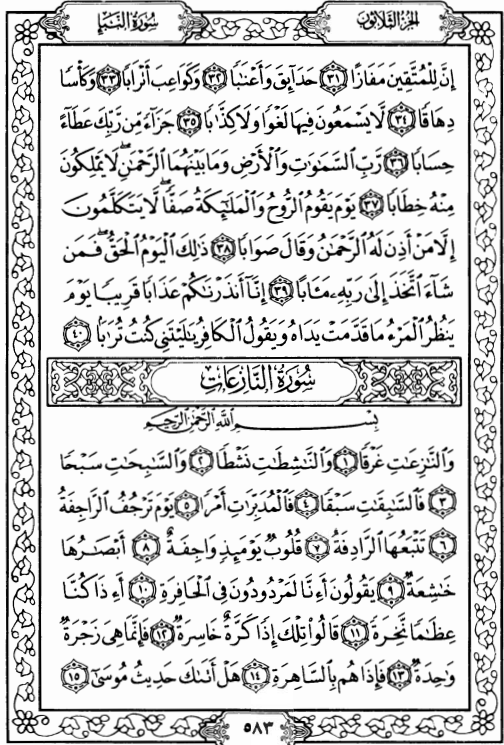 سُورَةُ النَّبَإِ
الجُزْءُ الثَّلَاثُونَ
إِنَّ لِلْمُتَّقِينَ مَفَازًا ٣١ حَدَآئِقَ وَأَعْنَٰبًا ٣٢ وَكَوَاعِبَ أَتْرَابًا ٣٣ وَكَأْسًا
دِهَاقًا ٣٤ لَّا يَسْمَعُونَ فِيهَا لَغْوًا وَلَا كِذَّٰبًا ٣٥ جَزَآءً مِّن رَّبِّكَ عَطَآءً
حِسَابًا ٣٦ رَّبِّ السَّمَٰوَٰتِ وَالْأَرْضِ وَمَا بَيْنَهُمَا الرَّحْمَٰنِ ۖ لَا يَمْلِكُونَ
مِنْهُ خِطَابًا ٣٧ يَوْمَ يَقُومُ الرُّوحُ وَالْمَلَٰٓئِكَةُ صَفًّا ۖ لَّا يَتَكَلَّمُونَ
إِلَّا مَنْ أَذِنَ لَهُ الرَّحْمَٰنُ وَقَالَ صَوَابًا ٣٨ ذَٰلِكَ الْيَوْمُ الْحَقُّ ۖ فَمَن
شَآءَ اتَّخَذَ إِلَىٰ رَبِّهِ مَـَٔابًا ٣٩ إِنَّآ أَنذَرْنَٰكُمْ عَذَابًا قَرِيبًا يَوْمَ
يَنظُرُ الْمَرْءُ مَا قَدَّمَتْ يَدَاهُ وَيَقُولُ الْكَافِرُ يَٰلَيْتَنِي كُنتُ تُرَٰبًا ٤٠
سُورَةُ النَّازِعَاتِ
بِسْمِ اللَّهِ الرَّحْمَٰنِ الرَّحِيمِ
وَالنَّٰزِعَٰتِ غَرْقًا ١ وَالنَّٰشِطَٰتِ نَشْطًا ٢ وَالسَّٰبِحَٰتِ سَبْحًا
٣ فَالسَّٰبِقَٰتِ سَبْقًا ٤ فَالْمُدَبِّرَٰتِ أَمْرًا ٥ يَوْمَ تَرْجُفُ الرَّاجِفَةُ
٦ تَتْبَعُهَا الرَّادِفَةُ ٧ قُلُوبٌ يَوْمَئِذٍ وَاجِفَةٌ ٨ أَبْصَٰرُهَا
خَٰشِعَةٌ ٩ يَقُولُونَ أَءِنَّا لَمَرْدُودُونَ فِي الْحَافِرَةِ ١٠ أَءِذَا كُنَّا
عِظَٰمًا نَّخِرَةً ١١ قَالُوا تِلْكَ إِذًا كَرَّةٌ خَاسِرَةٌ ١٢ فَإِنَّمَا هِيَ زَجْرَةٌ
وَٰحِدَةٌ ١٣ فَإِذَا هُم بِالسَّاهِرَةِ ١٤ هَلْ أَتَىٰكَ حَدِيثُ مُوسَىٰٓ ١٥
٥٨٣